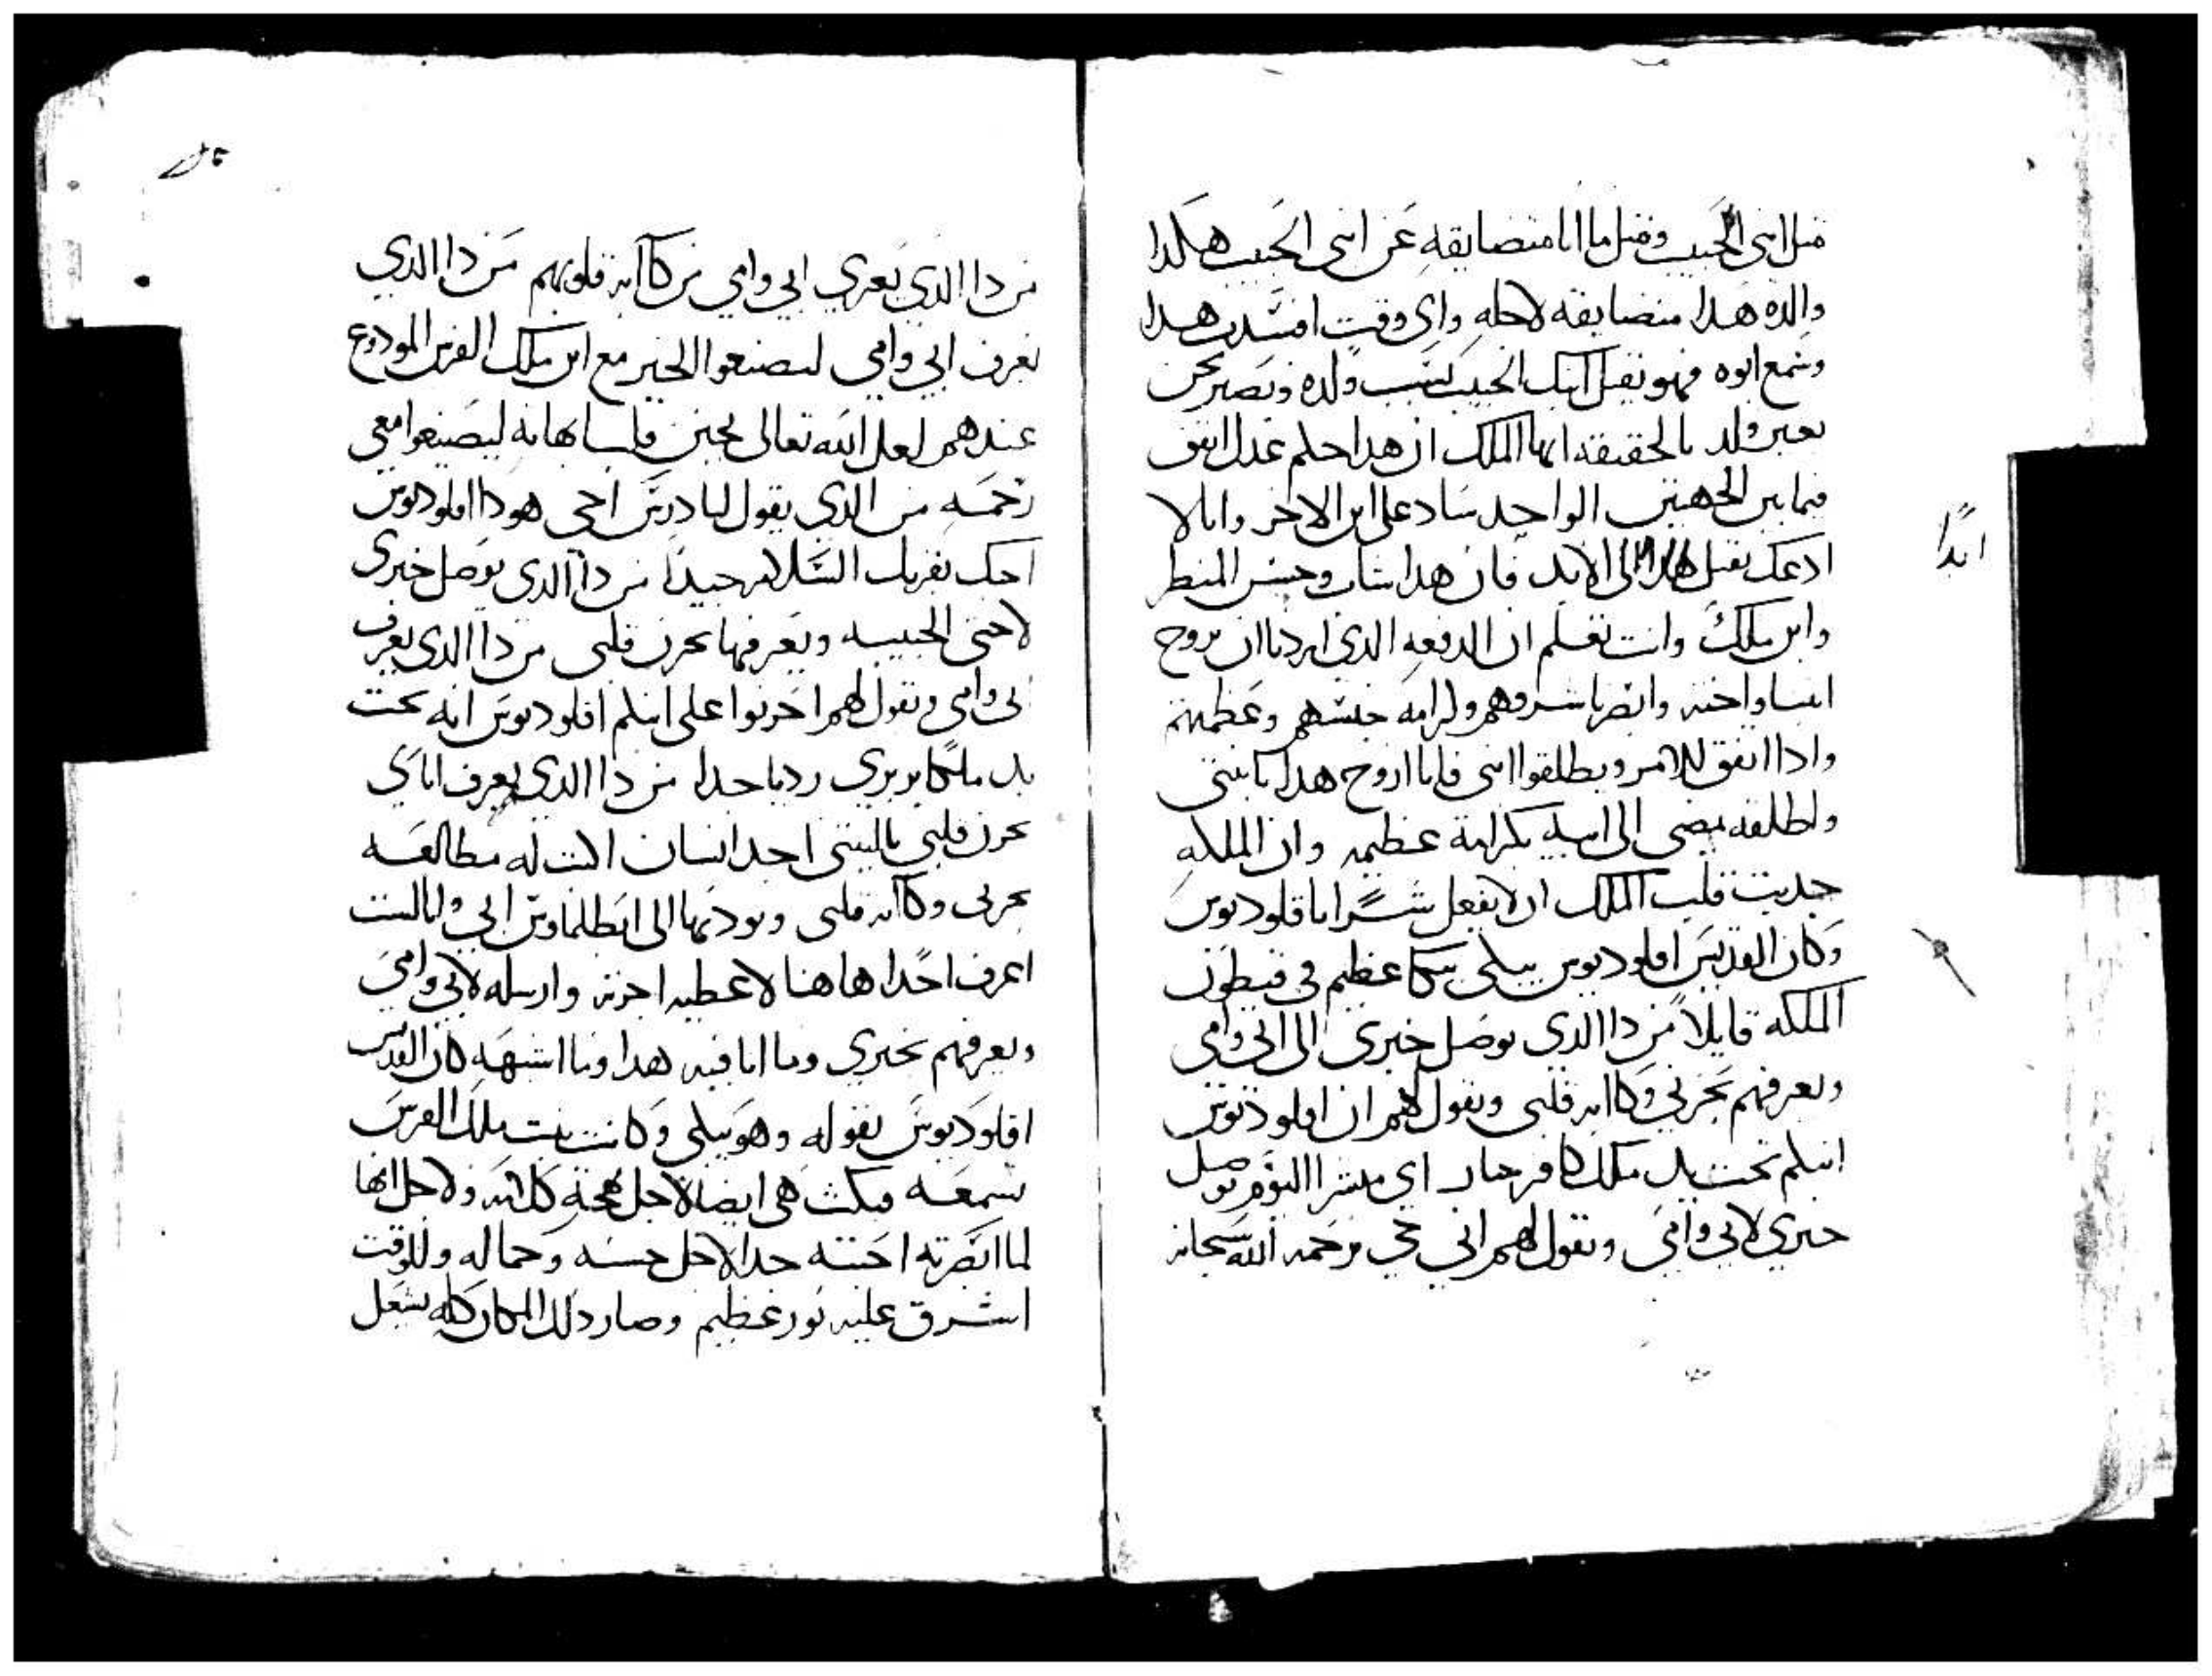 مثل ابني الحبيب ومثل ما انا متضايقه عن ابني الحبيب هكذا
والده هدا متضايقه لاجله واي وقت افتسدت هدا
وسمع ابوه فهو يقتل ابنك الحبيب كسبب ولده ونصير نحن
بغير ولد بالحقيقه ايها الملك ان هدا حلم عدل اتفق
فيما بين الجهتين الواحد ساد على ابن الاخر وانا لا
ادعك تقتل هدا الى الابد فان هدا شاب وحسن المنظر
ابدًا
وابن ملك وانت تعلم ان الدفعه الدي اردنا ان نروح
ابنينا واخته وانضر ما شرفوهم وكرامة جنسهم وعظمتهم
وادا اتفق للامر ويطلقوا ابني فانا اروح هدا يا بنتي
واطلقه يمضي الى ابيه بكرامة عظيمه وان الملكه
جدبت قلب الملك ان لا يفعل شرًا باقلوديوس
وكان القديس اقلوديوس يبكي بكا عظيم في قيطون
الملكه قايلاً من دا الدي يوصل خبري الى ابي وامي
ويعرفهم بحزني وكاابه قلبي ويقول لهم ان اقلوديوس
ابنكم تحت يد ملك كافر جبار اي مبشرا اليوم يوصل
خبري لابي وامي ويقول لهم اني حي برحمه الله سبحانه
من دا الدي يعزي ابي وامي من كاابه قلوبهم من دا الدي
يعرف ابي وامي ليصنعوا الخير مع ابن ملك الفرس المودوع
عندهم لعل الله تعالى يحنن قلب اهله ليصنعوا معي
رحمه من الدي يقول لتادرس اخي هودا اقلوديوس
اخك يقريك السلام جيدًا من دا الدي يوصل خبري
لاختي الحبيبه ويعرفها بحزن قلبي من دا الدي يعرف
ابي وامي ويقول لهم احزنوا على ابنكم اقلوديوس انه تحت
يد ملكًا بربري رديا جدا من دا الدي يعرف ابائي
بحزن قلبي يا ليتني اجد انسان اكتب له مطالعه
بحزني وكاابه قلبي ويوديها الى ابطلماوس ابي ويا ليت
اعرف احدًا هاهنا لاعطيه اجرته وارسله لابي وامي
ويعرفهم بخبري وما انا فيه هدا وما اشبهه كان القديس
اقلوديوس يقوله وهو يبكي وكانت بنت ملك الفرس
تسمعه فبكت هي ايضا لاجل محبة كلامه ولاجل انها
لما انضرته احبته جدا لاجل حسنه وجماله وللوقت
اشرق عليه نور عظيم وصار دلك المكان كله يشعل